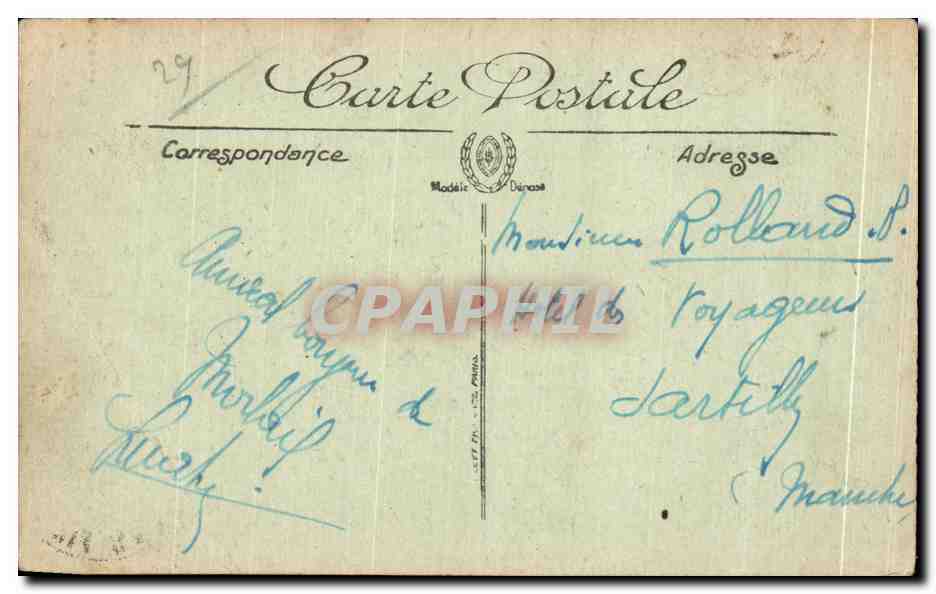 29
Carte Postale
Correspondance
Adresse
Modèle Déposé
Monsieur Rolland .P.
Hotel des Voyageurs
Sartilly
(Manche
Amical bonjour de
Morlaix
CPAPHIL
PARIS